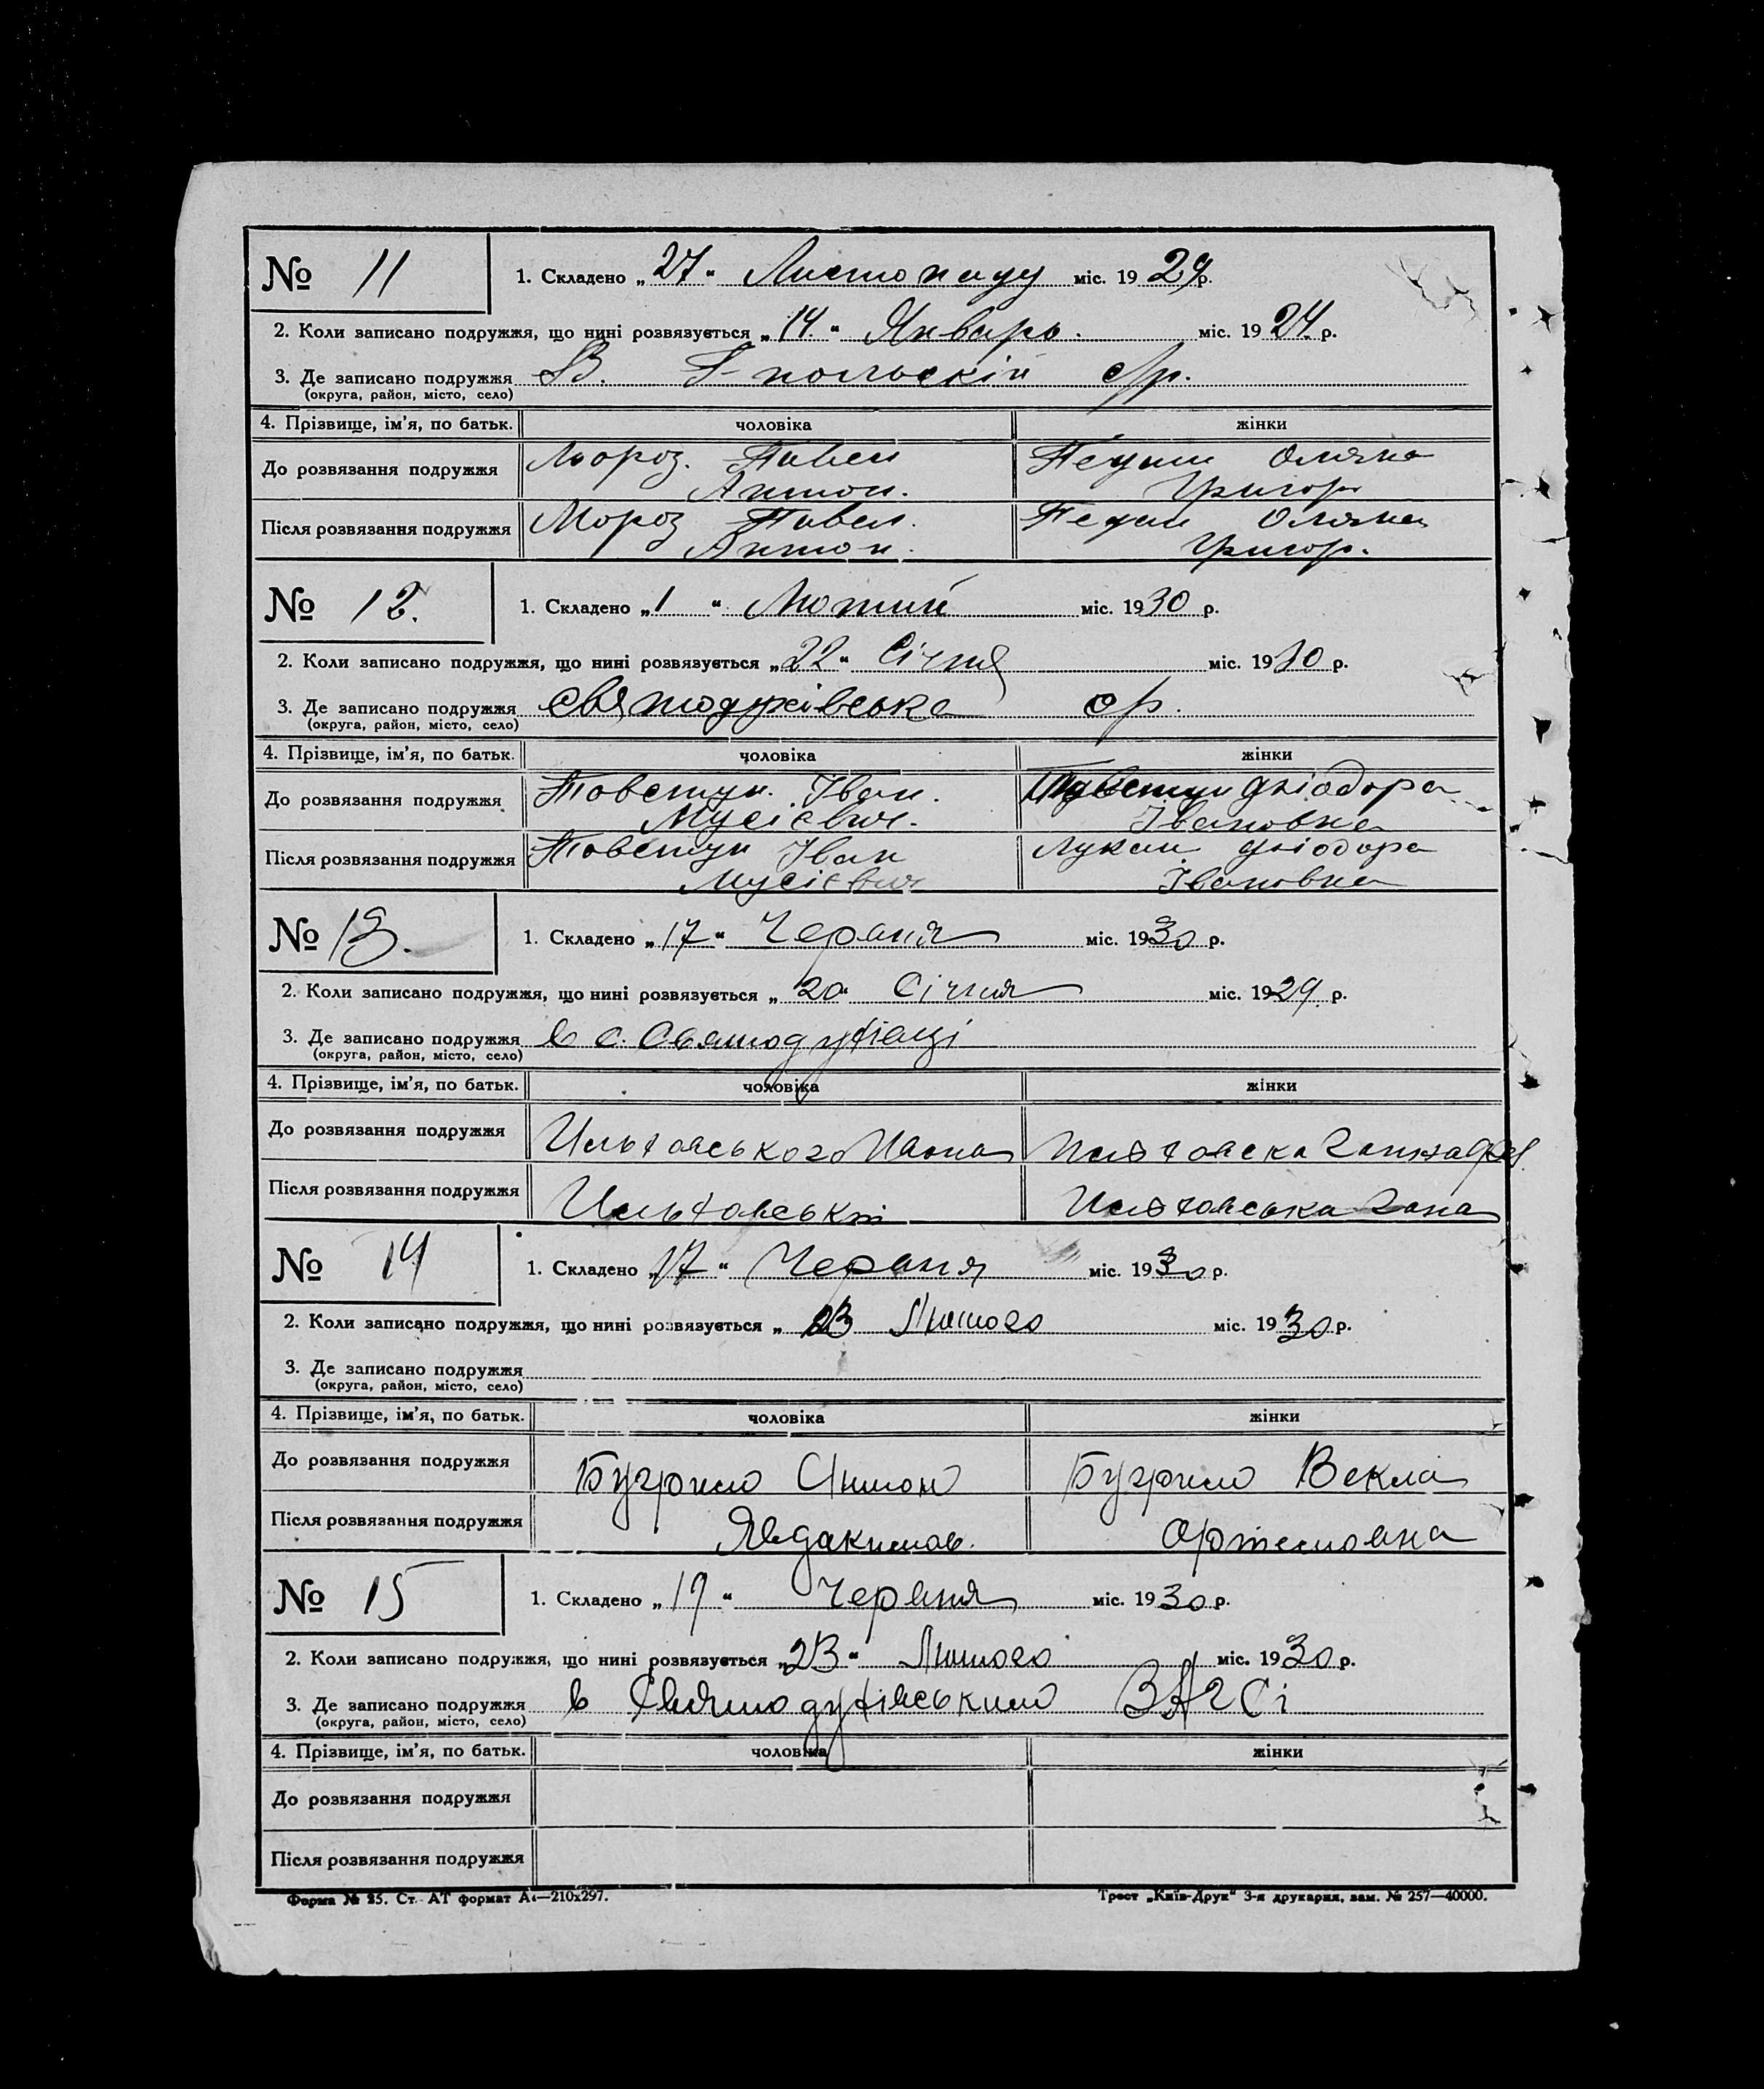 № 11 1. Складено „27“ Листопаду міс. 1929р.
2. Коли записано подружжя, що нині розвязується „14.“ Январь. міс. 1924.р.
3. Де записано подружжя В. с/р.
(округа, район, місто, село)
4. Прізвище, ім'я, по батьк. чоловіка жінки
До розвязання подружжя Мороз. Павел Оляна
Антон. Григор
Після розвязання подружжя Мороз Павел. Оляна
Антон. Григор.
№ 12. 1. Складено „1“ Лютий міс. 1930 р.
2. Коли записано подружжя, що нині розвязується „22“ Січня міс. 1930 р.
3. Де записано подружжя Святодухівська с/р.
(округа, район, місто, село)
4. Прізвище, ім'я, по батьк. чоловіка жінки
До розвязання подружжя Товстун. Іван. Товстун
Мусієвич. Івановна
Після розвязання подружжя Товстун Іван Лукаш
Мусієвич Івановна
№ 13. 1. Складено „17“ Червня міс. 1930 р.
2. Коли записано подружжя, що нині розвязується „20“ Січня міс. 1929. р.
3. Де записано подружжя в с.
(округа, район, місто, село)
4. Прізвище, ім'я, по батьк. чоловіка жінки
До розвязання подружжя
Після розвязання подружжя
№ 14 1. Складено „17“ Червня міс. 1930р.
2. Коли записано подружжя, що нині розвязується „23 Лютого міс. 1930р.
3. Де записано подружжя
(округа, район, місто, село)
4. Прізвище, ім'я, по батьк. чоловіка жінки
До розвязання подружжя Бугрило Антон Бугрило Векла
Після розвязання подружжя Явдакимов. Артемовна
№ 15 1. Складено „19“ Червня міс. 1930р.
2. Коли записано подружжя, що нині розвязується „23“ Лютого міс. 1930р.
3. Де записано подружжя в Святодухівським ЗАГСі
(округа, район, місто, село)
4. Прізвище, ім'я, по батьк. чоловіка жінки
До розвязання подружжя
Після розвязання подружжя
Форма № 25. Ст. АТ формат А4—210х297. Трест „Київ-Друк“ 3-я друкарня, зам. № 257—40000.